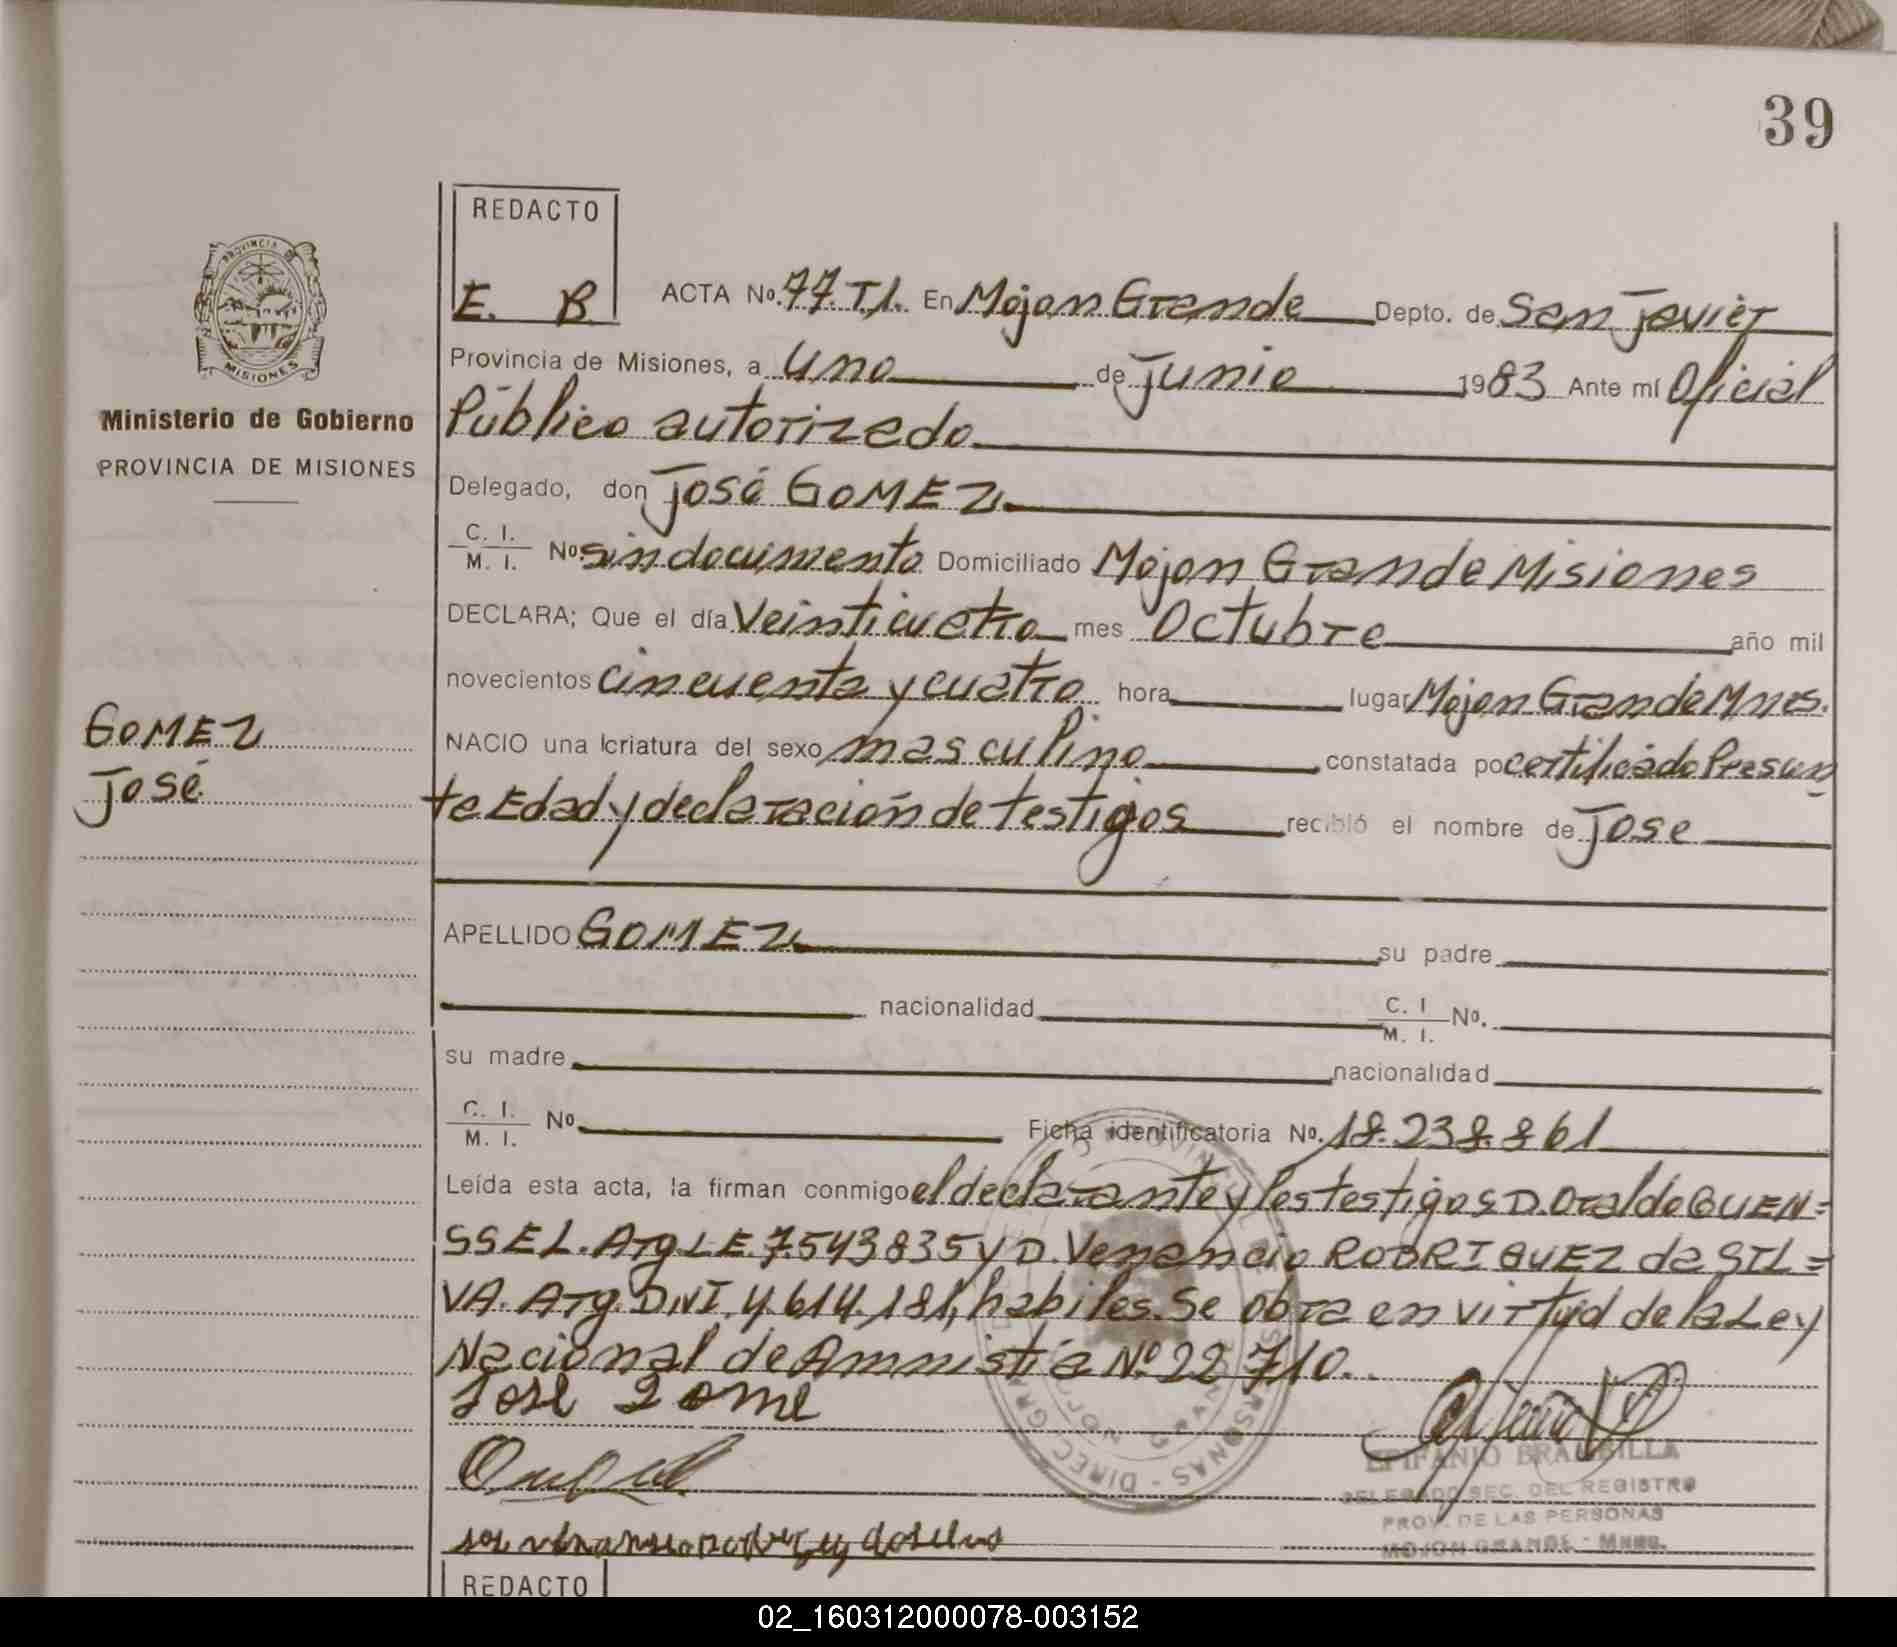 39
REDACTO
E. B.
PROVINCIA DE
MISIONES
Ministerio de Gobierno
PROVINCIA DE MISIONES
GOMEZ
José
ACTA No. 77. T1. En Mojon Grande Depto. de San Javier
Provincia de Misiones, a Uno de Junio 1983 Ante mí Oficial
Público autorizado
Delegado, don José GOMEZ
C. I.
M. I. No. sin documento Domiciliado Mojon Grande Misiones
DECLARA; Que el día Veinticuatro mes Octubre año mil
novecientos cincuenta y cuatro hora lugar Mojon Grande Mnes.
NACIO una criatura del sexo masculino constatada po certificado Presun
ta Edad y declaración de testigos recibió el nombre de Jose
APELLIDO GOMEZ su padre
nacionalidad C. I. M. I. No.
su madre nacionalidad
C. I.
M. I. No. Ficha identificatoria No. 18.238.861
Leída esta acta, la firman conmigo el declarante y los testigos D. Oraldo GUEN=
SSEL. Arg. L.E. 7.543835 y D. Venancio RODRIGUEZ da SIL=
VA. Arg. D.N.I. 4.614.181, habiles. Se obra en virtud de la Ley
Nacional de Amnistía Nº 22710.
Jose Gome
EPIFANIO BRAMBILLA
DELEGADO SEC. DEL REGISTRO
PROV. DE LAS PERSONAS
MOJON GRANDE - Mnes.
REDACTO
02_160312000078-003152